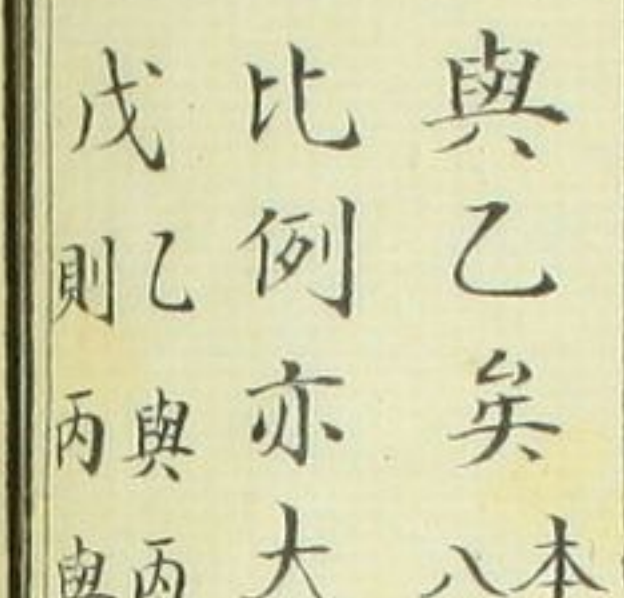 與乙矣本
八
比例亦大
戊乙與丙
則丙與